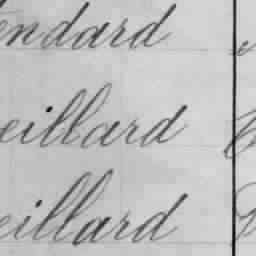 endard
eillard
eillard